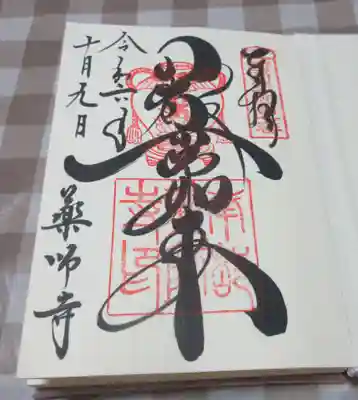 奉拝
薬師如来
令和六年
十月九日
藥師寺